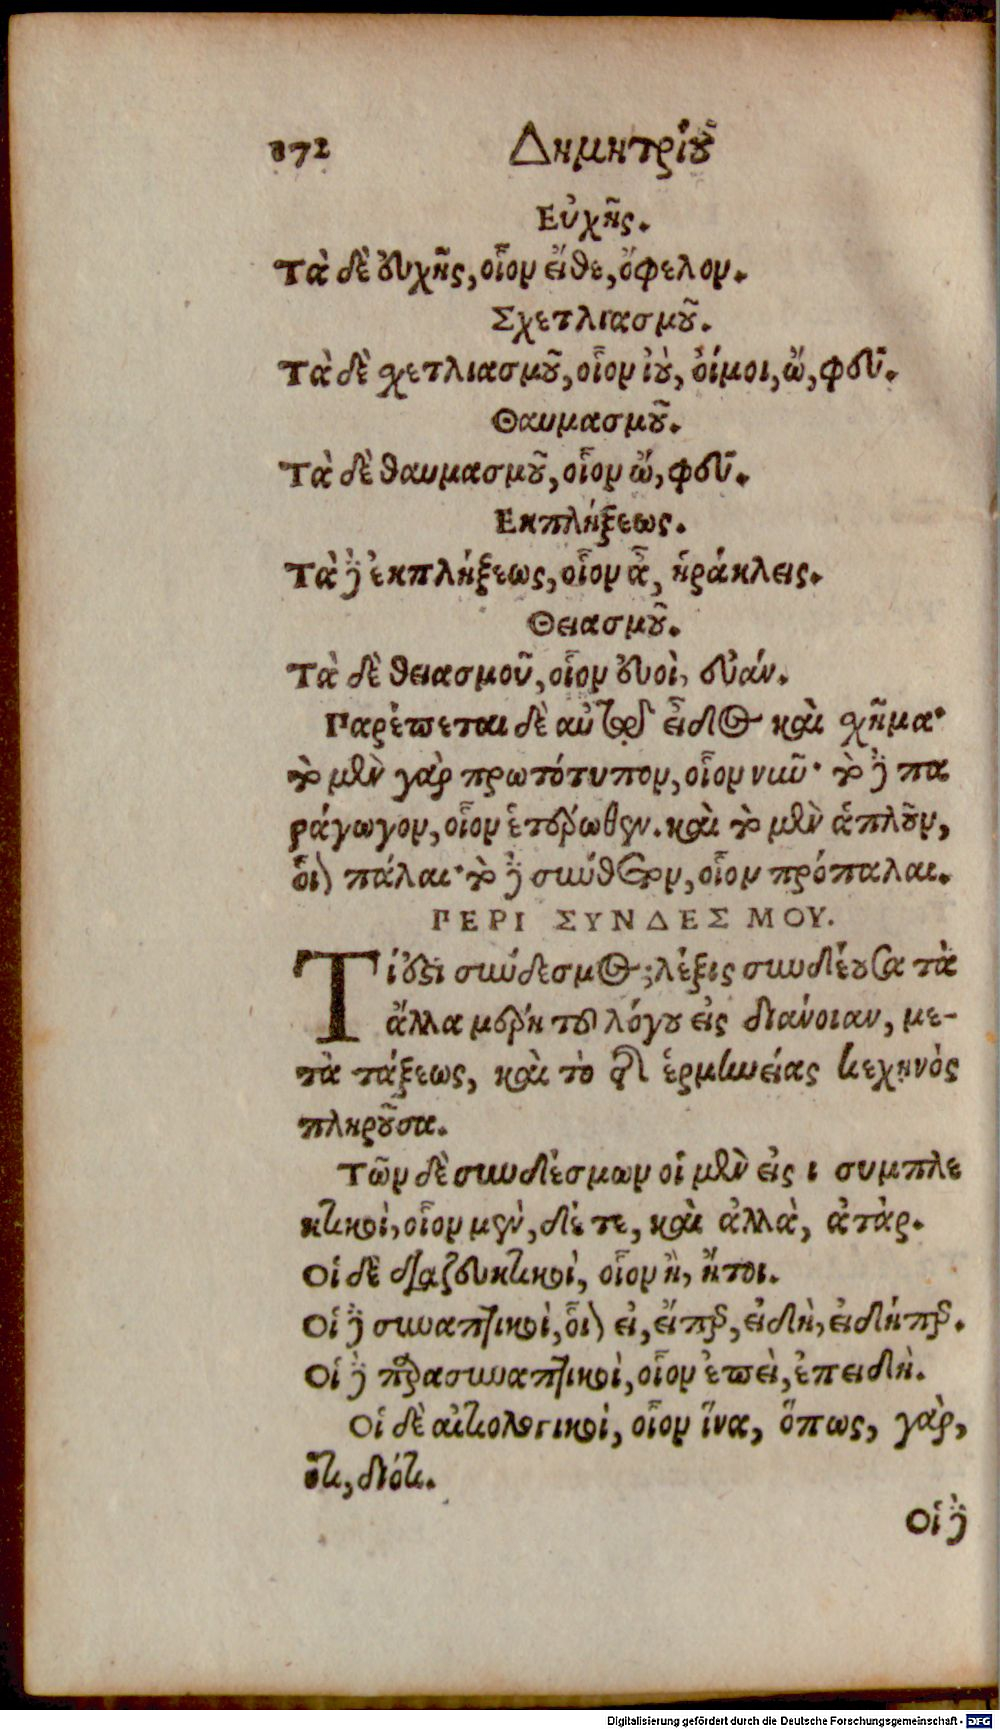 172 Δημητρίου
Εὐχῆς.
Τὰ δὲ εὐχῆς, οἷον εἴθε, ὄφελον.
Σχετλιασμοῦ.
Τὰ δὲ σχετλιασμοῦ, οἷον ἰοὺ, οἴμοι, ὤ, φεῦ.
Θαυμασμοῦ.
Τὰ δὲ θαυμασμοῦ, οἷον ὤ, φεῦ.
Εκπλήξεως.
Τὰ δὲ ἐκπλήξεως, οἷον ἆ, ἡράκλεις.
Θειασμοῦ.
Τὰ δὲ θειασμοῦ, οἷον εὐοὶ, εὐάν.
Παρέπεται δὲ αὐτοῖς εἶδος καὶ σχῆμα·
τὸ μὲν γὰρ πρωτότυπον, οἷον νῦν· τὸ δὲ πα
ράγωγον, οἷον ἑτέρωθεν. καὶ τὸ μὲν ἁπλοῦν,
οἷον πάλαι· τὸ δὲ σύνθετον, οἷον πρόπαλαι.
ΠΕΡΙ ΣΥΝΔΕΣΜΟΥ.
Τί ἐστι σύνδεσμος; λέξις συνδέουσα τὰ
ἄλλα μέρη τοῦ λόγου εἰς διάνοιαν, με-
τὰ τάξεως, καὶ τὸ τῆς ἑρμηνείας κεχηνὸς
πληροῦσα.
Τῶν δὲ συνδέσμων οἱ μὲν εἰσι συμπλε
κτικοὶ, οἷον μεν, δέ τε, καὶ ἀλλὰ, ἀτὰρ.
Οἱ δὲ διαζευκτικοὶ, οἷον ἢ, ἤτοι.
Οἱ δὲ συναπτικοὶ, οἷον εἰ, εἴπερ, εἰδὴ, εἰδήπερ.
Οἱ δὲ παρασυναπτικοὶ, οἷον ἐπεὶ, ἐπειδὴ.
Οἱ δὲ αἰτιολογικοὶ, οἷον ἵνα, ὅπως, γὰρ,
ὅτι, διότι.
Οἱ δὲ
Digitalisierung gefördert durch die Deutsche Forschungsgemeinschaft - DFG